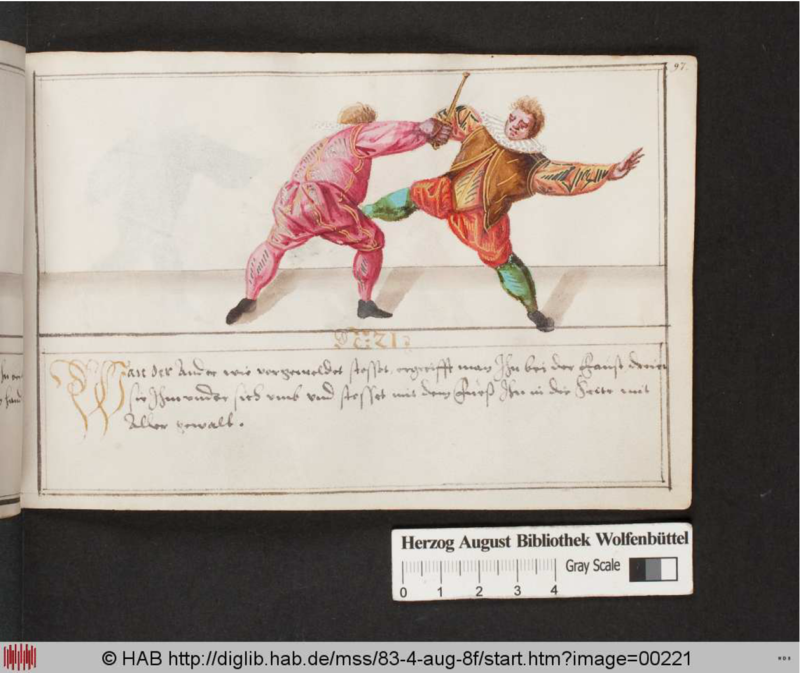 97.
21
Wan der Ander wie vorgemeldet stosset, ergreifft man Ihn bei der Faust, drein
sie Ihm under sich umb und stosset mit dem Fueß Ihn in die Seite mit
Aller gewalt.
Herzog August Bibliothek Wolfenbüttel
Gray Scale
0 1 2 3 4
© HAB http://diglib.hab.de/mss/83-4-aug-8f/start.htm?image=00221